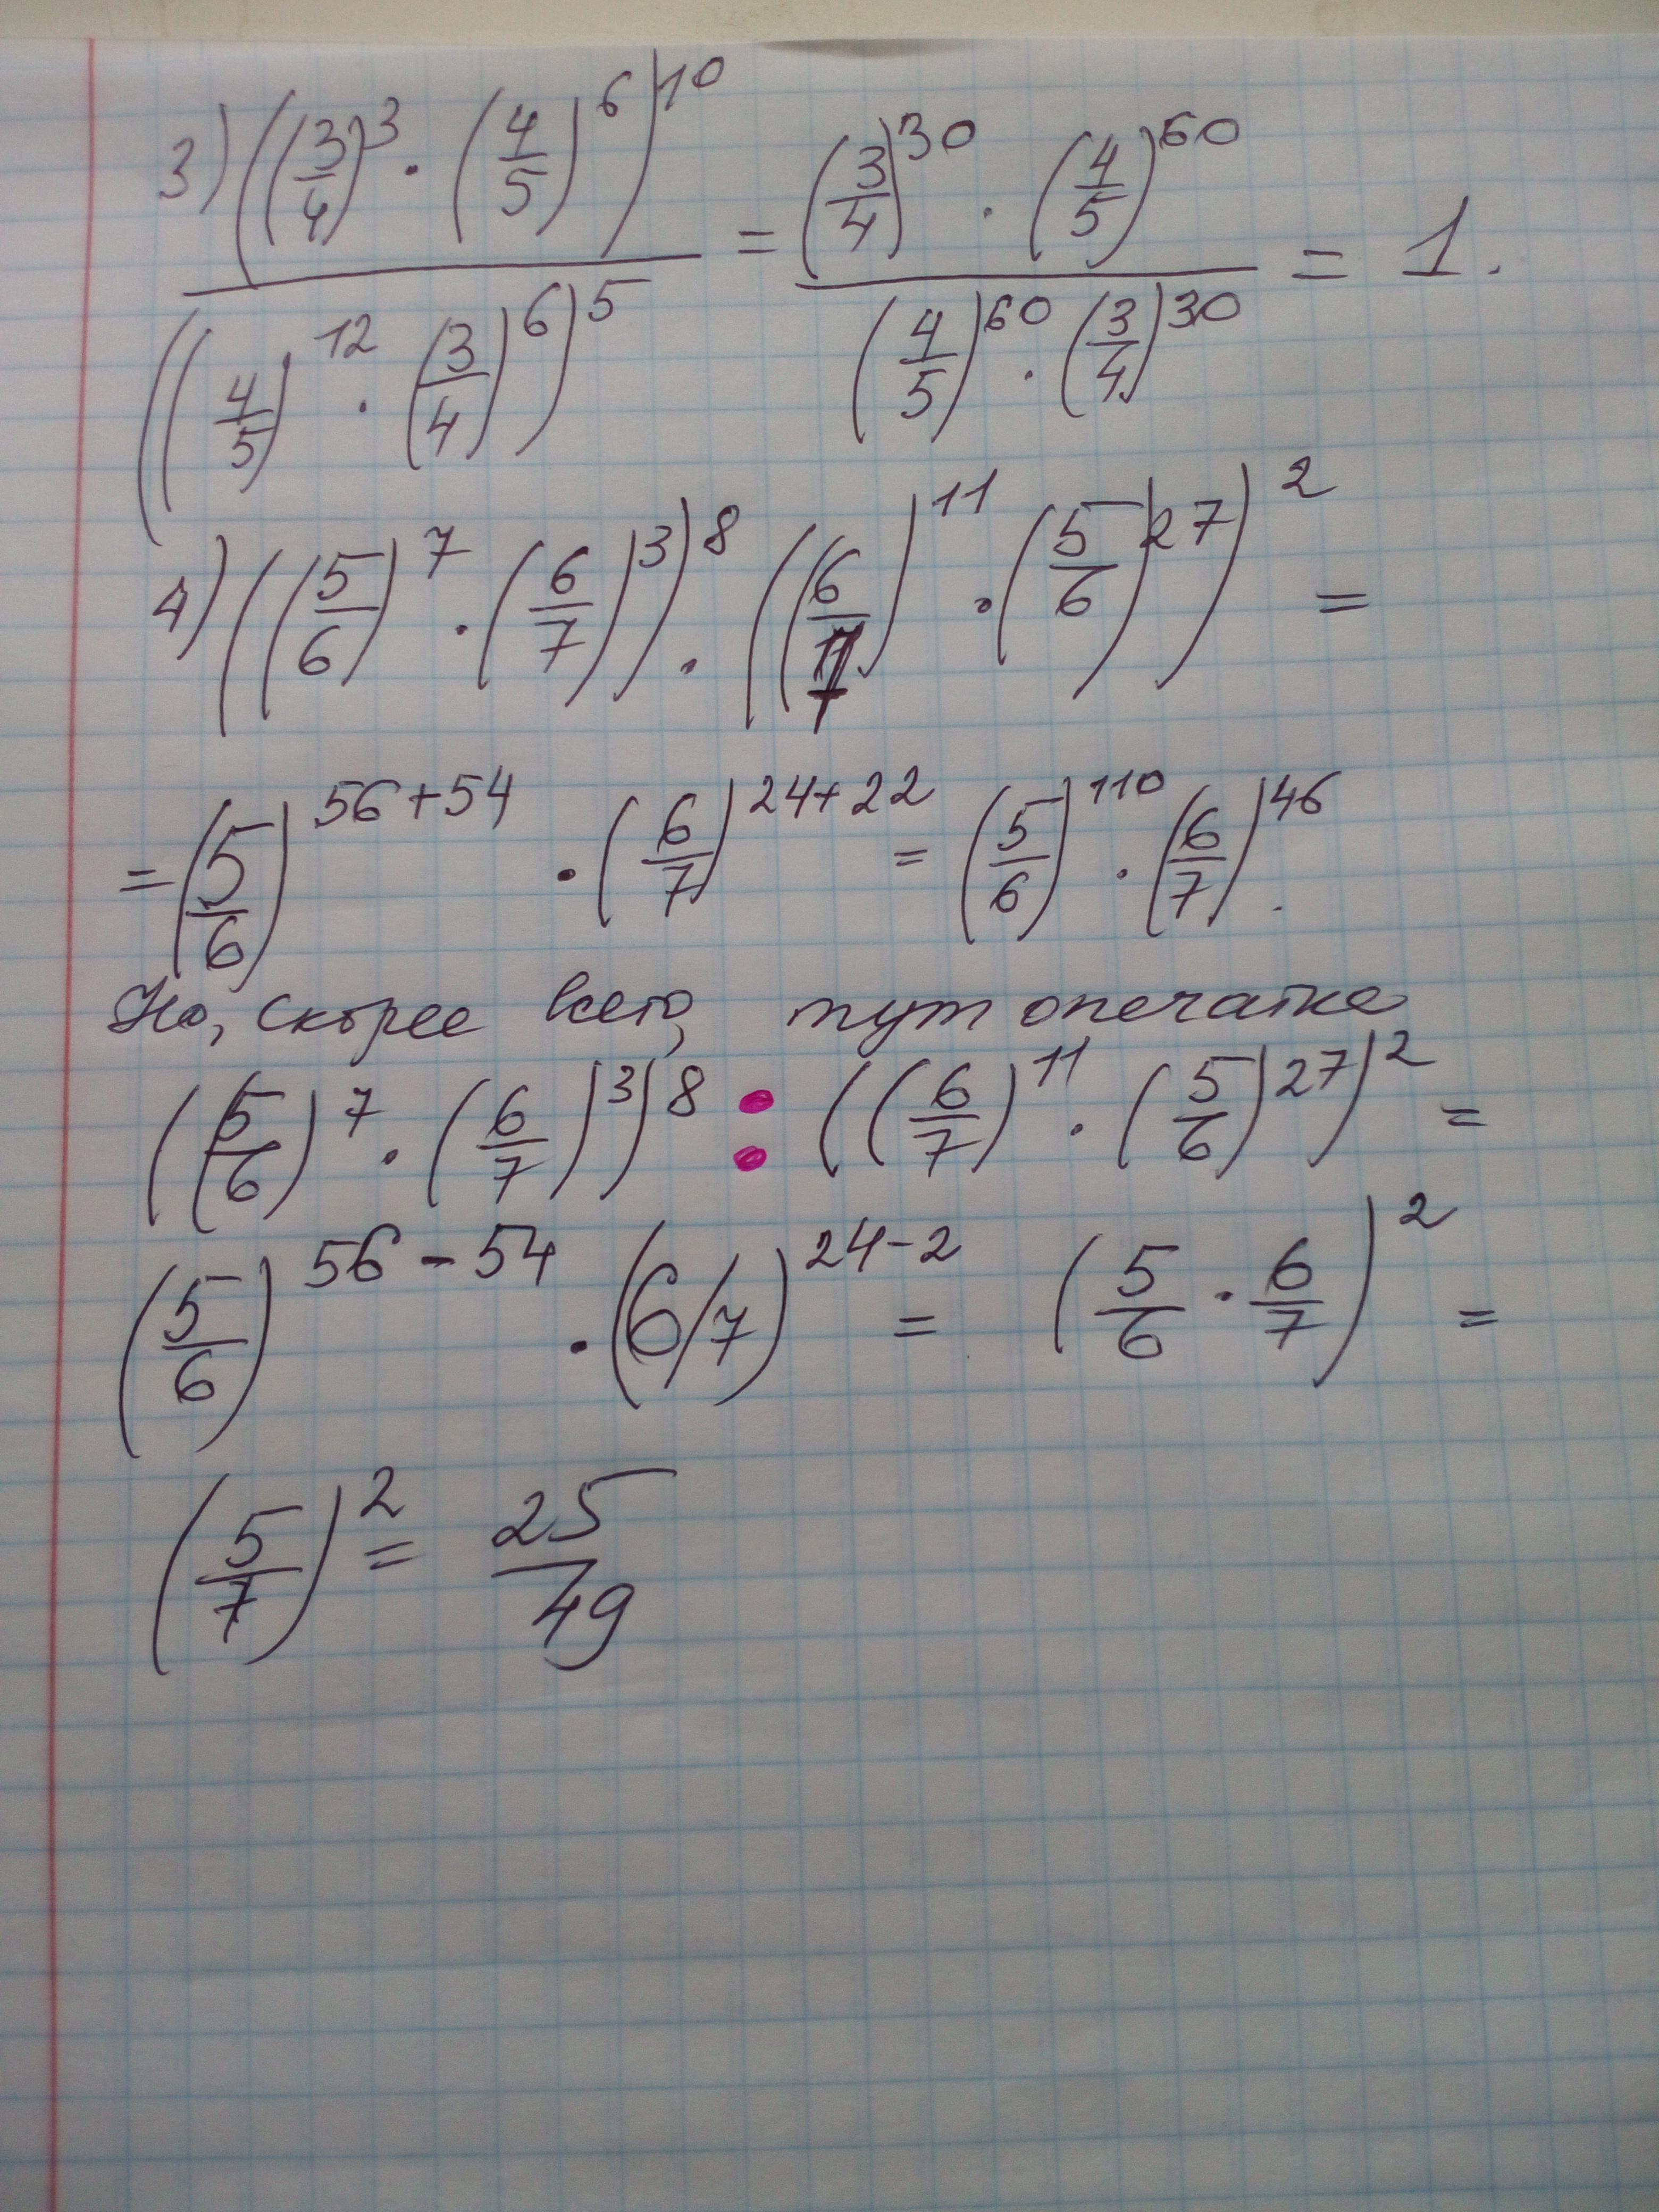 3) ((3/4)^3 · (4/5)^6)^10 / ((4/5)^12 · (3/4)^6)^5 = (3/4)^30 · (4/5)^60 / (4/5)^60 · (3/4)^30 = 1.
4) ((5/6)^7 · (6/7)^3)^8 · ((6/7)^11 · (5/6)^27)^2 =
= (5/6)^56+54 · (6/7)^24+22 = (5/6)^110 · (6/7)^46.
Но, скорее всего, тут опечатка
((5/6)^7 · (6/7)^3)^8 : ((6/7)^11 · (5/6)^27)^2 =
(5/6)^56-54 · (6/7)^24-2 = (5/6 · 6/7)^2 =
(5/7)^2 = 25/49